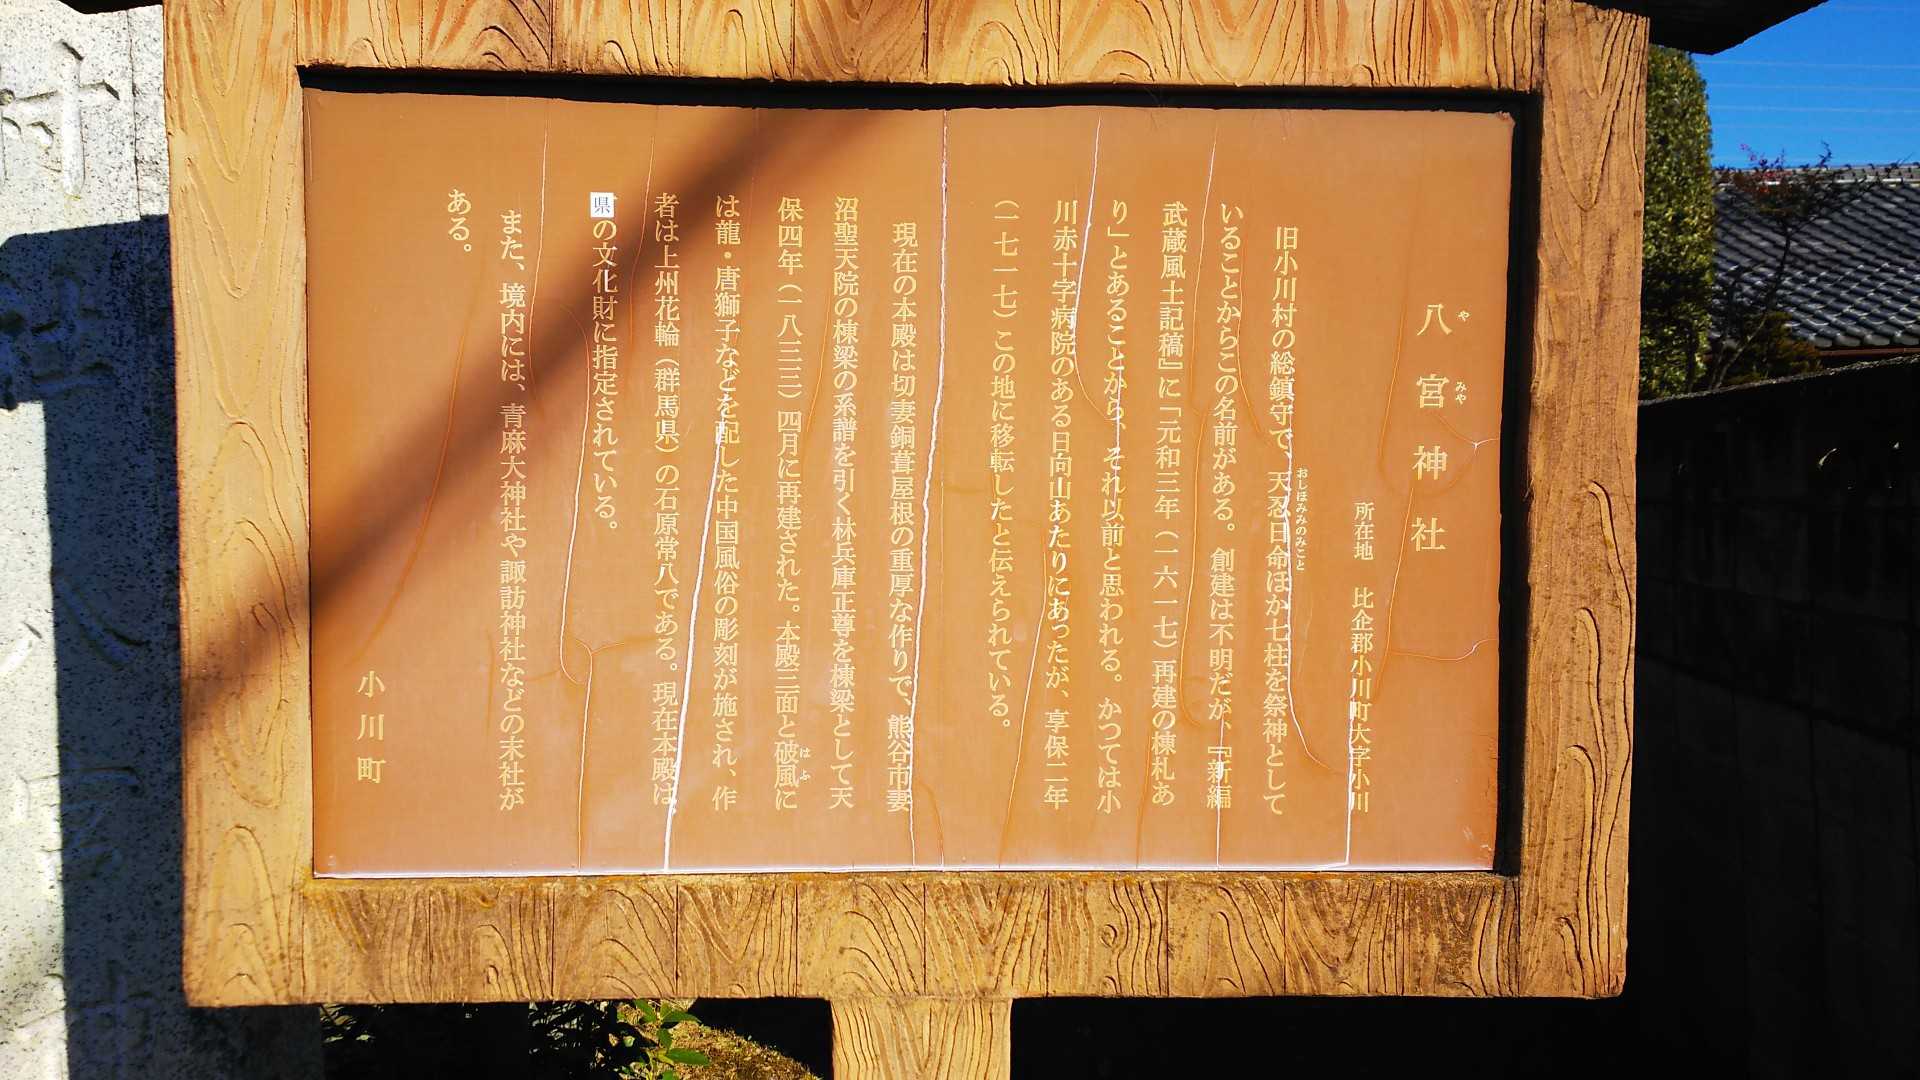 八宮神社
やみや
所在地　比企郡小川町大字小川
旧小川村の総鎮守で、天忍日命ほか七柱を祭神として
おしほみみのみこと
いることからこの名前がある。創建は不明だが、『新編
武蔵風土記稿』に「元和三年（一六一七）再建の棟札あ
り」とあることから、それ以前と思われる。かつては小
川赤十字病院のある日向山あたりにあったが、享保二年
（一七一七）この地に移転したと伝えられている。
現在の本殿は切妻銅葺屋根の重厚な作りで、熊谷市妻
沼聖天院の棟梁の系譜を引く林兵庫正尊を棟梁として天
保四年（一八三三）四月に再建された。本殿三面と破風に
はふ
は龍・唐獅子などを配した中国風俗の彫刻が施され、作
者は上州花輪（群馬県）の石原常八である。現在本殿は、
県の文化財に指定されている。
また、境内には、青麻大神社や諏訪神社などの末社が
ある。
小川町